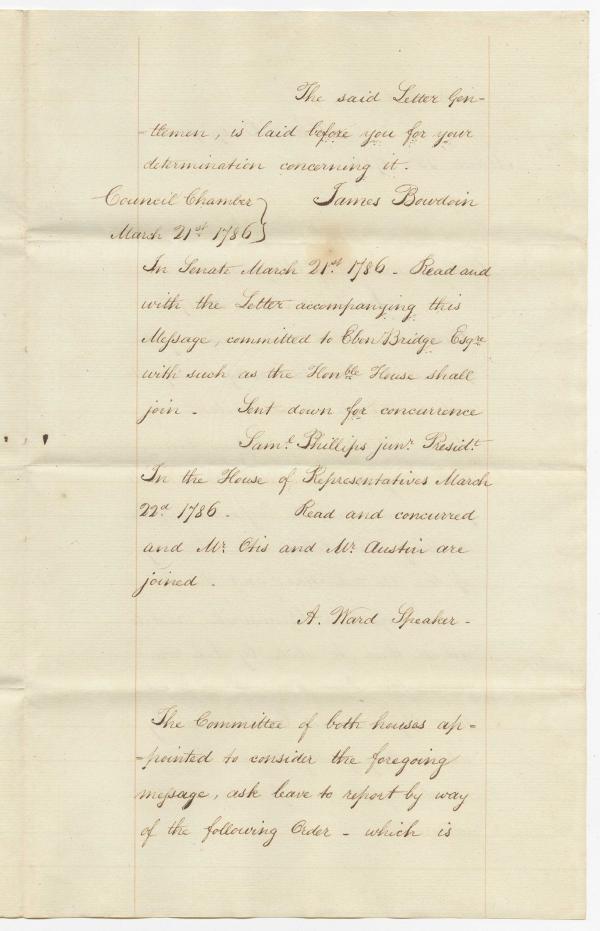 The said Letter Gen-
-tlemen, is laid before you for your
determination concerning it.
Council Chamber } James Bowdoin
March 21st 1786 }
In Senate March 21st 1786 - Read and
with the Letter accompanying this
Message, committed to Eben Bridge Esqre
with such as the Honble House shall
join - Sent down for concurrence
Saml Phillips junr Presidt
In the House of Representatives March
22d 1786 - Read and concurred
and Mr Otis and Mr Austin are
joined -
A. Ward Speaker -
The Committee of both houses ap-
-pointed to consider the foregoing
message, ask leave to report by way
of the following Order - which is